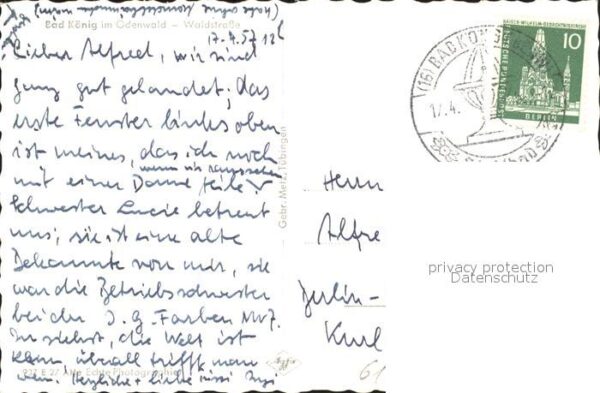 Bad König im Odenwald – Waldstraße
17.4.57
Lieber Alfred, wir sind
ganz gut gelandet; das
erste Fenster links oben
ist meines, das ich noch
wenn wir rausgehen
mit einer Dame teile
Schwester Lucie betreut
uns; sie ist eine alte
Bekannte von mir, sie
war die Betriebsschwester
bei der I.G. Farben NW7.
Du siehst, die Welt ist
klein, überall trifft man
wen. Herzliche + liebe
927 E 27 Alle Echte Photographie
Gebr. Metz, Tübingen
Herrn
Alfre
Berlin-
61
(16) BAD KÖNIG
17.4.
10
DEUTSCHE BUNDESPOST
BERLIN
privacy protection
Datenschutz